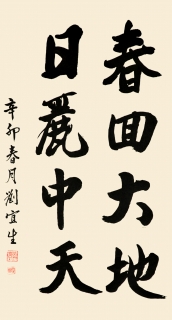 春回大地
日麗中天
辛卯春月劉宜生